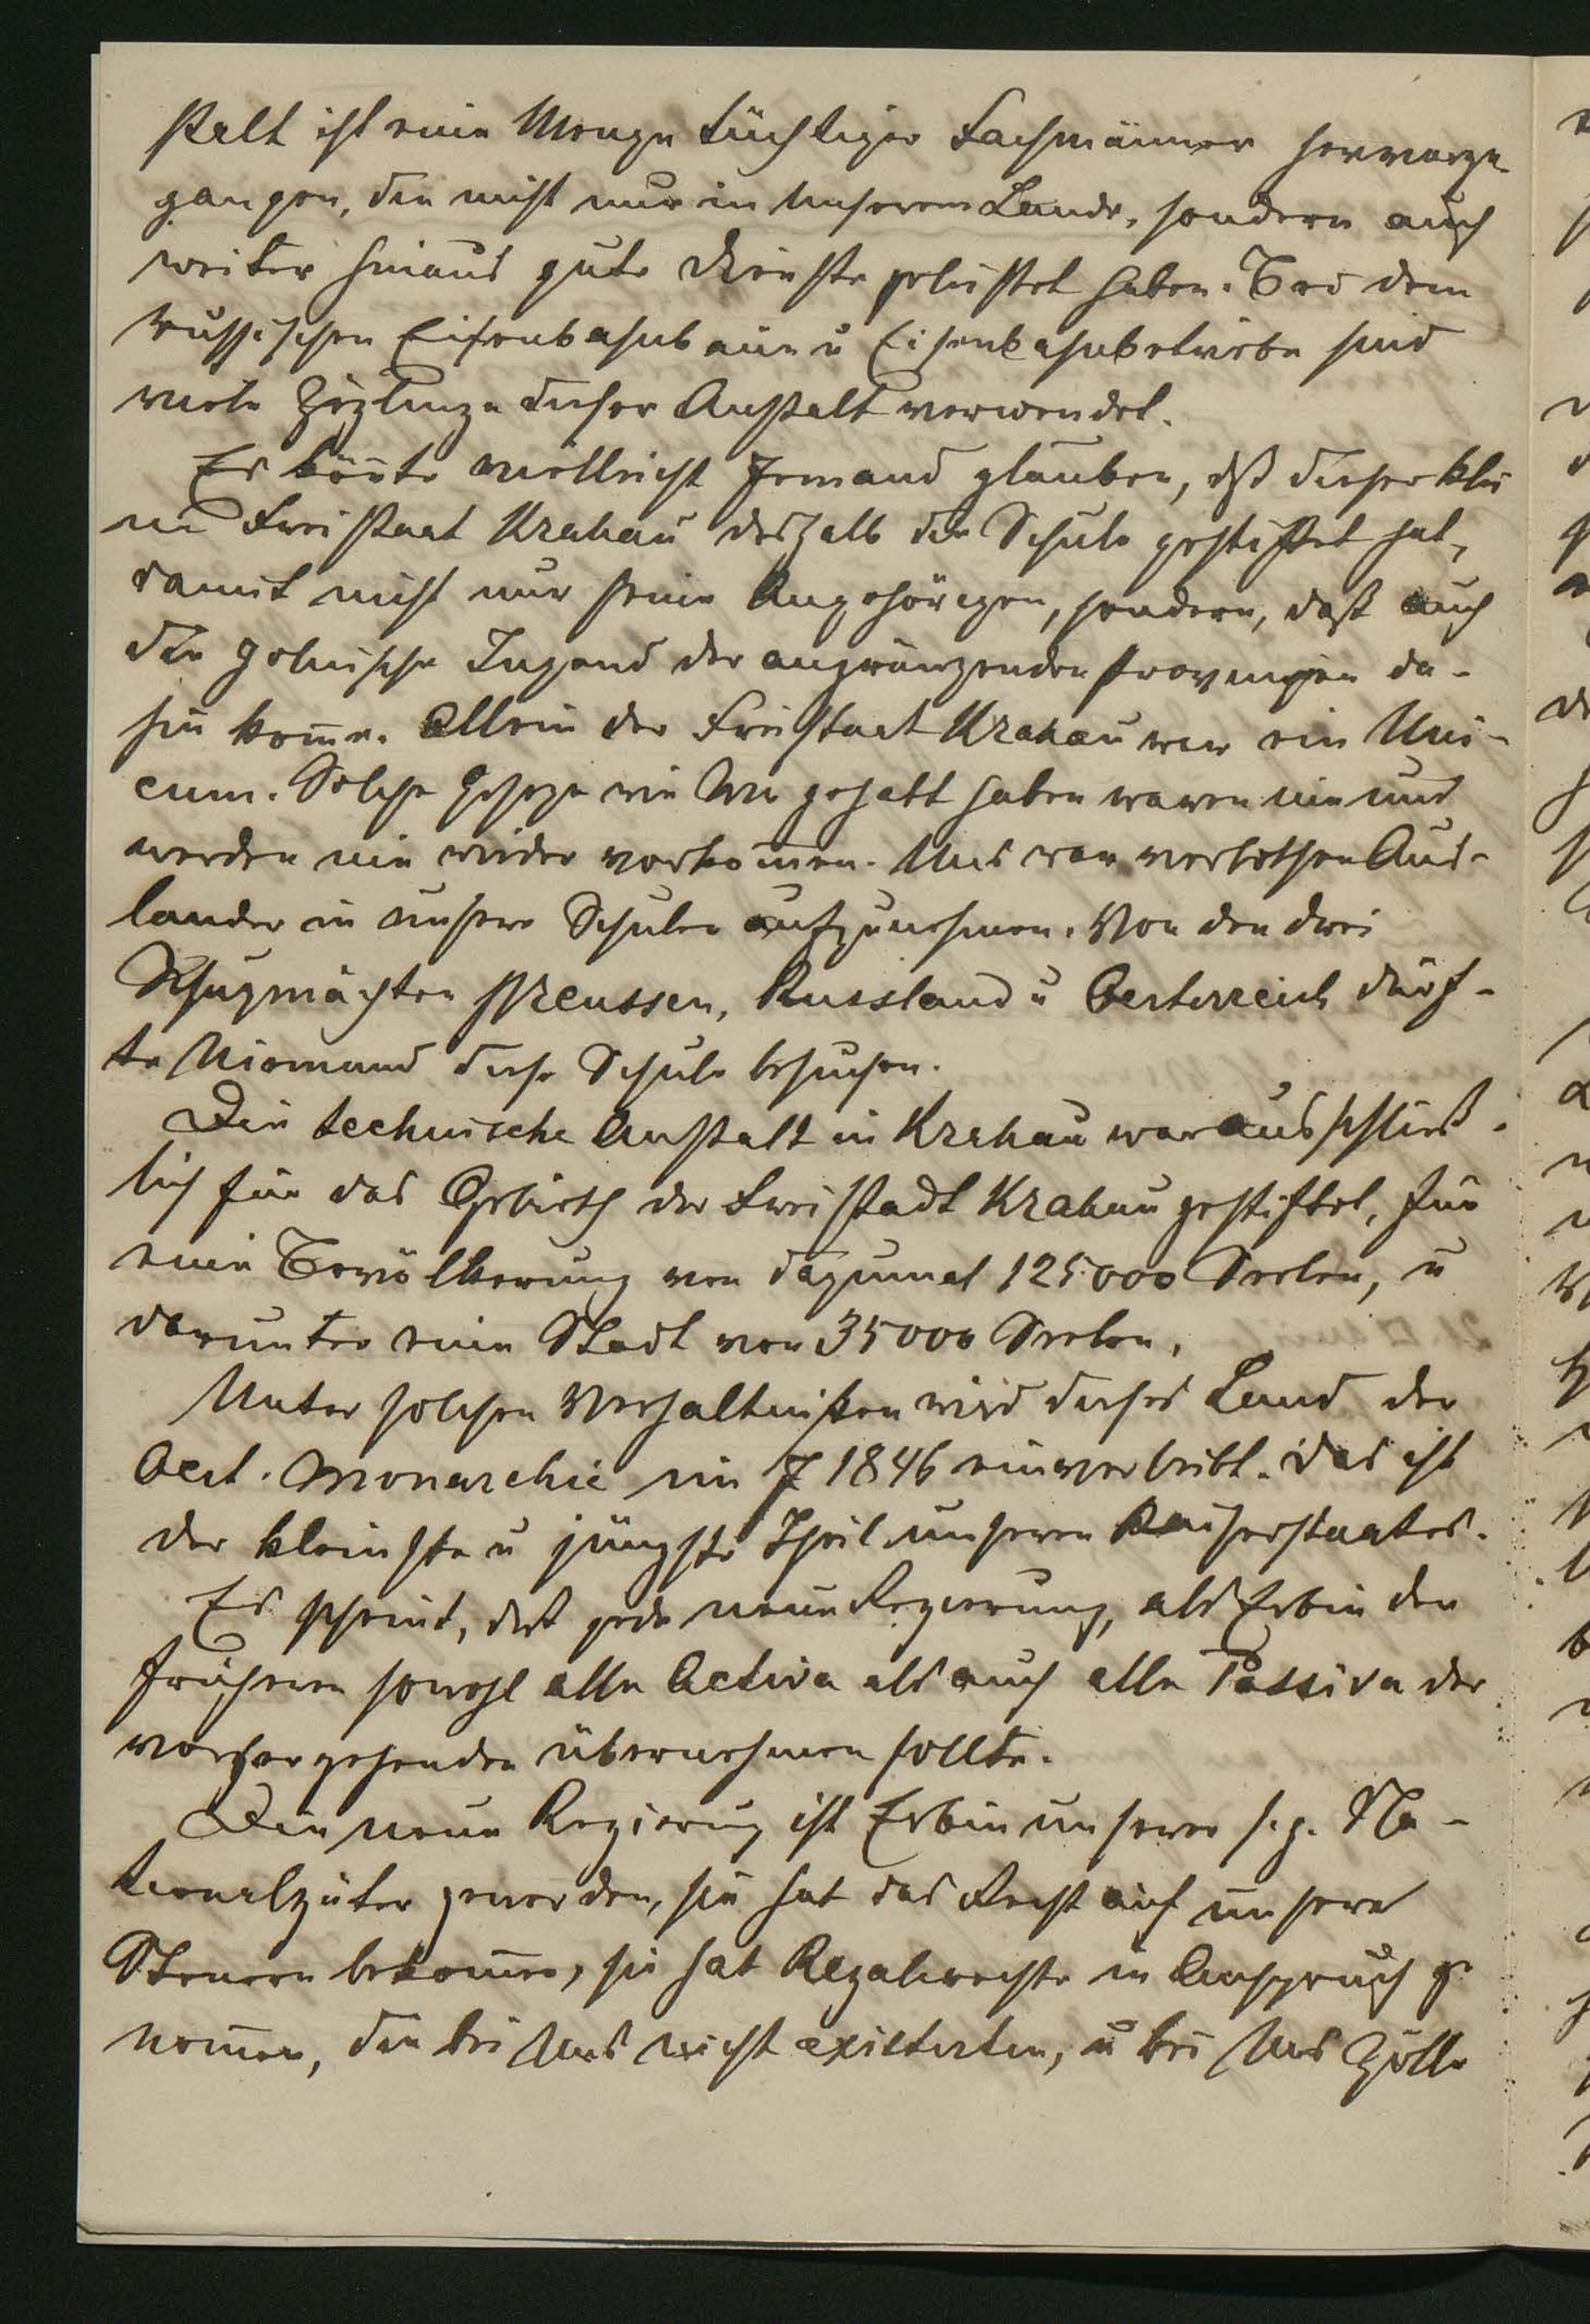 stalt ist eine Menge tüchtiger Fachmänner hervorge
gangen, die nicht nur in unserem Lande, sondern auch
weiter hinaus gute Dienste geleistet haben. Bei dem
russischen Eisenbahnbaue u Eisenbahnbetriebe sind
viele Zöglinge dieser Anstalt verwendet.
Es kön̄te vielleicht Jemand glauben, dß dieser klei
ne Freistaat Krakau deshalb die Schule gestiftet hat,
damit nicht nur seine Angehörigen, sondern, daß auch
die polnische Jugend der angränzenden Provinzen da-
hin kom̄e. Allein der Freistaat Krakau war ein Uni-
cum. Solche Geseze wie Wir gehabt haben waren nie und
werden nie wieder vorkom̄en. Uns war verbothen Aus-
lander in unsere Schulen aufzunehmen. Von den drei
Schuzmächten Preussen, Russland u Oesterreich dürf-
te Niemand diese Schule besuchen.
Die technische Anstalt in Krakau war ausschließ-
lich für das Gebieth der Freistadt Krakau gestiftet, für
eine Bevölkerung von dazumal 125000 Seelen, u
darunter eine Stadt von 35000 Seelen.
Unter solchen Verhaltnißen wird dieses Land der
Oest. Monarchie im J 1846 einverleibt. Das ist
der kleinste u jüngste Theil unseres Kaiserstaates.
Es scheint, daß jede neue Regierung, als Erbin der
früheren sowohl alle Activa als auch alle Passiva der
vorhergehenden übernehmen sollte.
Die neue Regierung ist Erbin unserer s.g. Na-
tionalgüter geworden, sie hat das Recht auf unsere
Steuern bekom̄en, sie hat Regalrechte in Anspruch ge
nom̄en, die bei Uns nicht existirten, u bei Uns Zölle